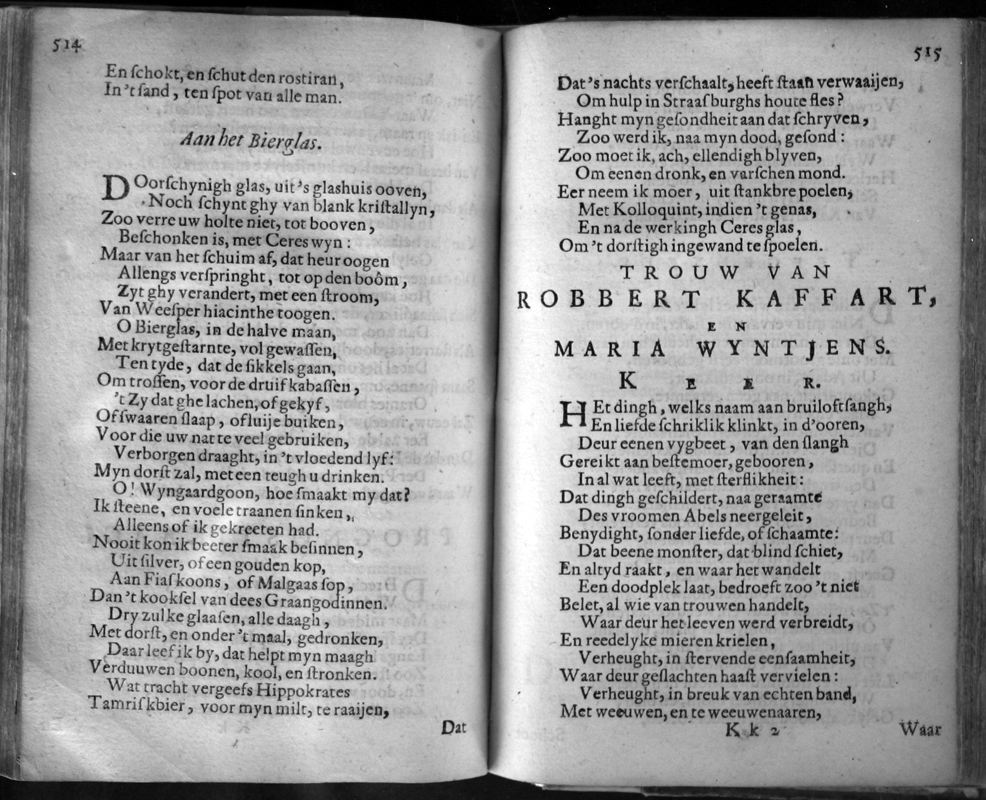 514
En ſchokt, en ſchut den rostiran,
In 't ſand, ten ſpot van alle man.
Aan het Bierglas.
DOorſchynigh glas, uit 's glashuis ooven,
Noch ſchynt ghy van blank kriſtallyn,
Zoo verre uw holte niet, tot booven,
Beſchonken is, met Ceres wyn:
Maar van het ſchuim af, dat heur oogen
Allengs verſpringht, tot op den boôm,
Zyt ghy verandert, met een ſtroom,
Van Weeſper hiacinthe toogen.
O Bierglas, in de halve maan,
Met krytgeſtarnte, vol gewaſſen,
Ten tyde, dat de ſikkels gaan,
Om troſſen, voor de druif kabaſſen,
't Zy dat ghe lachen, of gekyf,
Of ſwaaren ſlaap, of luije buiken,
Voor die uw nat te veel gebruiken,
Verborgen draaght, in 't vloedend lyf:
Myn dorſt zal, met een teugh u drinken.
O! Wyngaardgoon, hoe ſmaakt my dat?
Ik ſteene, en voele traanen ſinken,
Alleens of ik gekreeten had.
Nooit kon ik beeter ſmaak beſinnen,
Uit ſilver, of een gouden kop,
Aan Fiaſkoons, of Malgaas ſop,
Dan 't kookſel van dees Graangodinnen.
Dry zulke glaaſen, alle daagh,
Met dorſt, en onder 't maal, gedronken,
Daar leef ik by, dat helpt myn maagh
Verduuwen boonen, kool, en ſtronken.
Wat tracht vergeefs Hippokrates
Tamriſkbier, voor myn milt, te raaijen,
Dat
515
Dat 's nachts verſchaalt, heeft ſtaan verwaaijen,
Om hulp in Straaſburghs houte fles?
Hanght myn geſondheit aan dat ſchryven,
Zoo werd ik, naa myn dood, geſond:
Zoo moet ik, ach, ellendigh blyven,
Om eenen dronk, en varſchen mond.
Eer neem ik moer, uit ſtankbre poelen,
Met Kolloquint, indien 't genas,
En na de werkingh Ceres glas,
Om 't dorſtigh ingewand te ſpoelen.
TROUW VAN
ROBBERT KAFFART,
EN
MARIA WYNTJENS.
KEER.
HEt dingh, welks naam aan bruiloftſangh,
En liefde ſchriklik klinkt, in d'ooren,
Deur eenen vygbeet, van den ſlangh
Gereikt aan beſtemoer, gebooren,
In al wat leeft, met ſterflikheit:
Dat dingh geſchildert, naa geraamte
Des vroomen Abels neergeleit,
Benydight, ſonder liefde, of ſchaamte:
Dat beene monſter, dat blind ſchiet,
En altyd raakt, en waar het wandelt
Een doodplek laat, bedroeft zoo 't niet
Belet, al wie van trouwen handelt,
Waar deur het leeven werd verbreidt,
En reedelyke mieren krielen,
Verheught, in ſtervende eenſaamheit,
Waar deur geſlachten haaſt vervielen:
Verheught, in breuk van echten band,
Met weeuwen, en te weeuwenaaren,
Kk 2
Waar